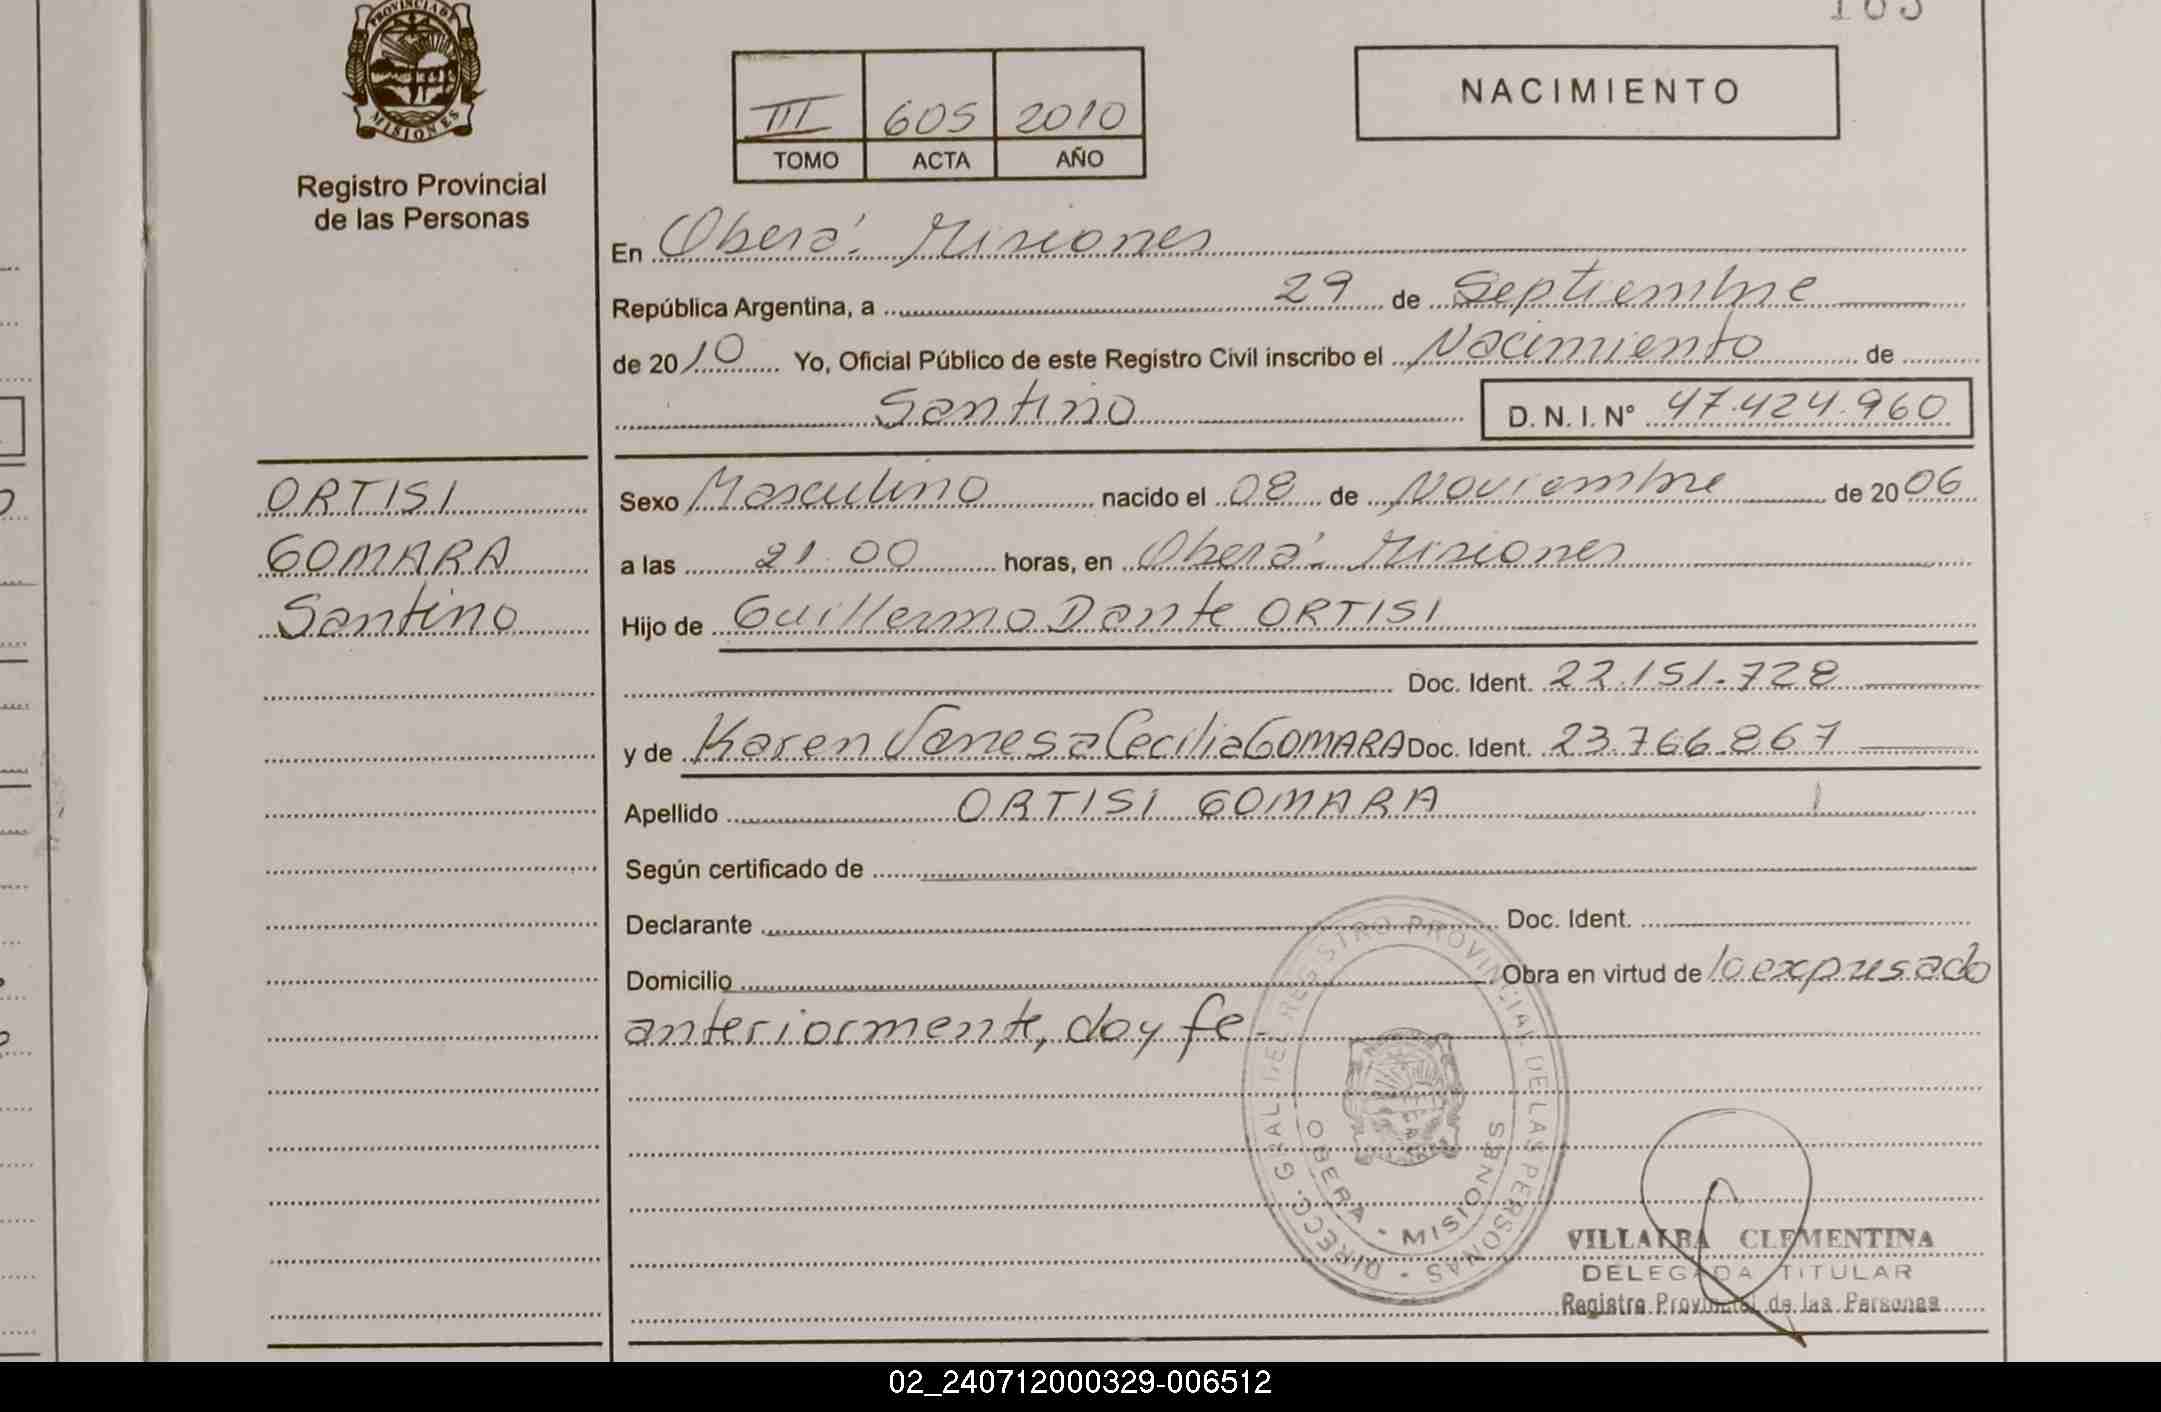 PROVINCIA DE
MISIONES
Registro Provincial
de las Personas
III 605 2010
TOMO ACTA AÑO
NACIMIENTO
En Oberá Misiones
República Argentina, a 29 de Septiembre
de 2010 Yo, Oficial Público de este Registro Civil inscribo el Nacimiento de
Santino D. N. I. Nº 47.424.960
ORTISI
GOMARA
Santino
Sexo Masculino nacido el 08 de Noviembre de 2006
a las 21.00 horas, en Oberá Misiones
Hijo de Guillermo Dante ORTISI
Doc. Ident. 22.151.728
y de Karen Vanesa Cecilia GOMARA Doc. Ident. 23.766.867
Apellido ORTISI GOMARA
Según certificado de
Declarante Doc. Ident.
Domicilio Obra en virtud de lo expresado
anteriormente, doy fe-
DIRECC. GRAL. DE REGISTRO PROVINCIAL DE LAS PERSONAS
OBERA - MISIONES
VILLALBA CLEMENTINA
DELEGADA TITULAR
Registro Provincial de las Personas
02_240712000329-006512